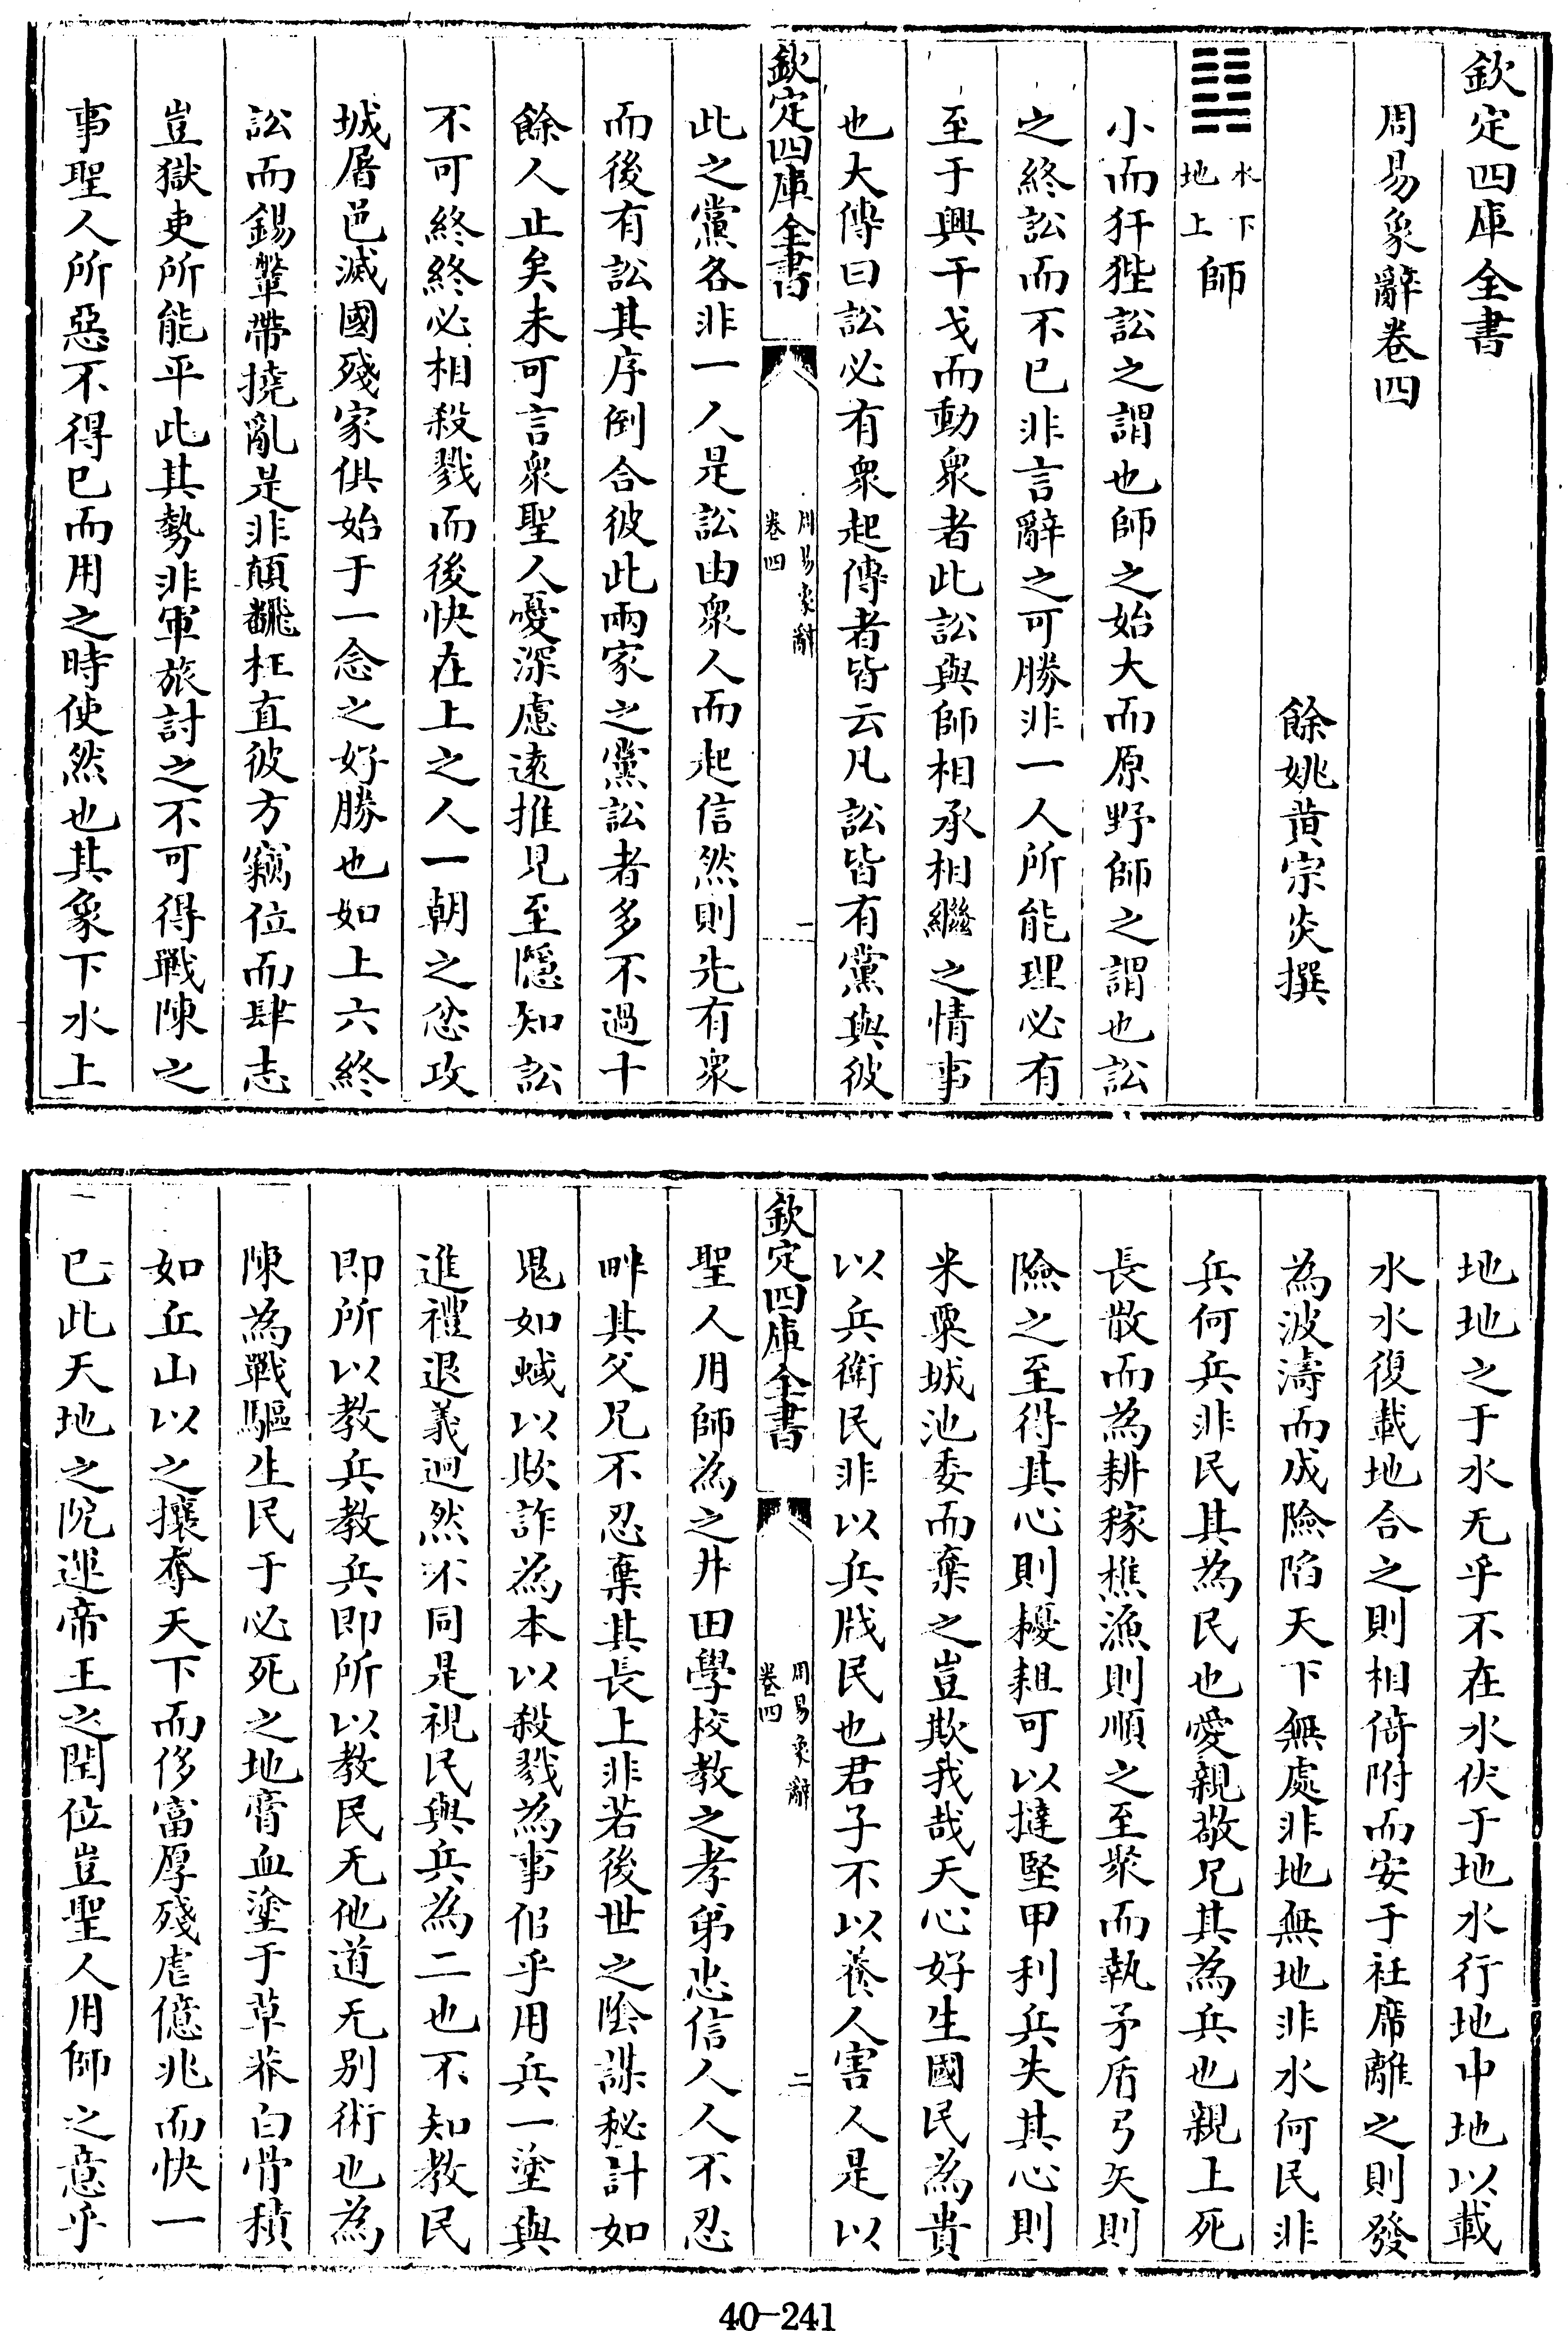 欽定四庫全書
周易象辭卷四
餘姚黃宗炎撰
䷆
水下
地上
師
小而犴狴訟之謂也師之始大而原野師之謂也訟
之終訟而不已非言辭之可勝非一人所能理必有
至于興干戈而動衆者此訟與師相承相繼之情事
也大傳曰訟必有衆起傳者皆云凡訟皆有黨與彼
欽定四庫全書
周易象辭
卷四
一
此之黨各非一人是訟由衆人而起信然則先有衆
而後有訟其序倒合彼此兩家之黨訟者多不過十
餘人止矣未可言衆聖人憂深慮遠推見至隱知訟
不可終終必相殺戮而後快在上之人一朝之忿攻
城屠邑滅國殘家俱始于一念之好勝也如上六終
訟而錫鞶帶撓亂是非顛飜枉直彼方竊位而肆志
豈獄吏所能平此其勢非軍旅討之不可得戰陳之
事聖人所惡不得已而用之時使然也其象下水上
地地之于水无乎不在水伏于地水行地中地以載
水水復載地合之則相倚附而安于衽席離之則發
為波濤而成險陷天下無處非地無地非水何民非
兵何兵非民其為民也愛親敬兄其為兵也親上死
長散而為耕稼樵漁則順之至聚而執矛盾弓矢則
險之至得其心則耰耡可以撻堅甲利兵失其心則
米粟城池委而棄之豈欺我哉天心好生國民為貴
以兵衛民非以兵戕民也君子不以養人害人是以
欽定四庫全書
周易象辭
卷四
二
聖人用師為之井田學校教之孝弟忠信人人不忍
畔其父兄不忍棄其長上非若後世之陰謀秘計如
鬼如蜮以欺詐為本以殺戮為事侶乎用兵一塗與
進禮退義迥然不同是視民與兵為二也不知教民
即所以教兵教兵即所以教民无他道无别術也為
陳為戰驅生民于必死之地膏血塗于草莽白骨積
如丘山以之攘奪天下而侈富厚殘虐億兆而快一
已此天地之阨運帝王之閏位豈聖人用師之意乎
40-241